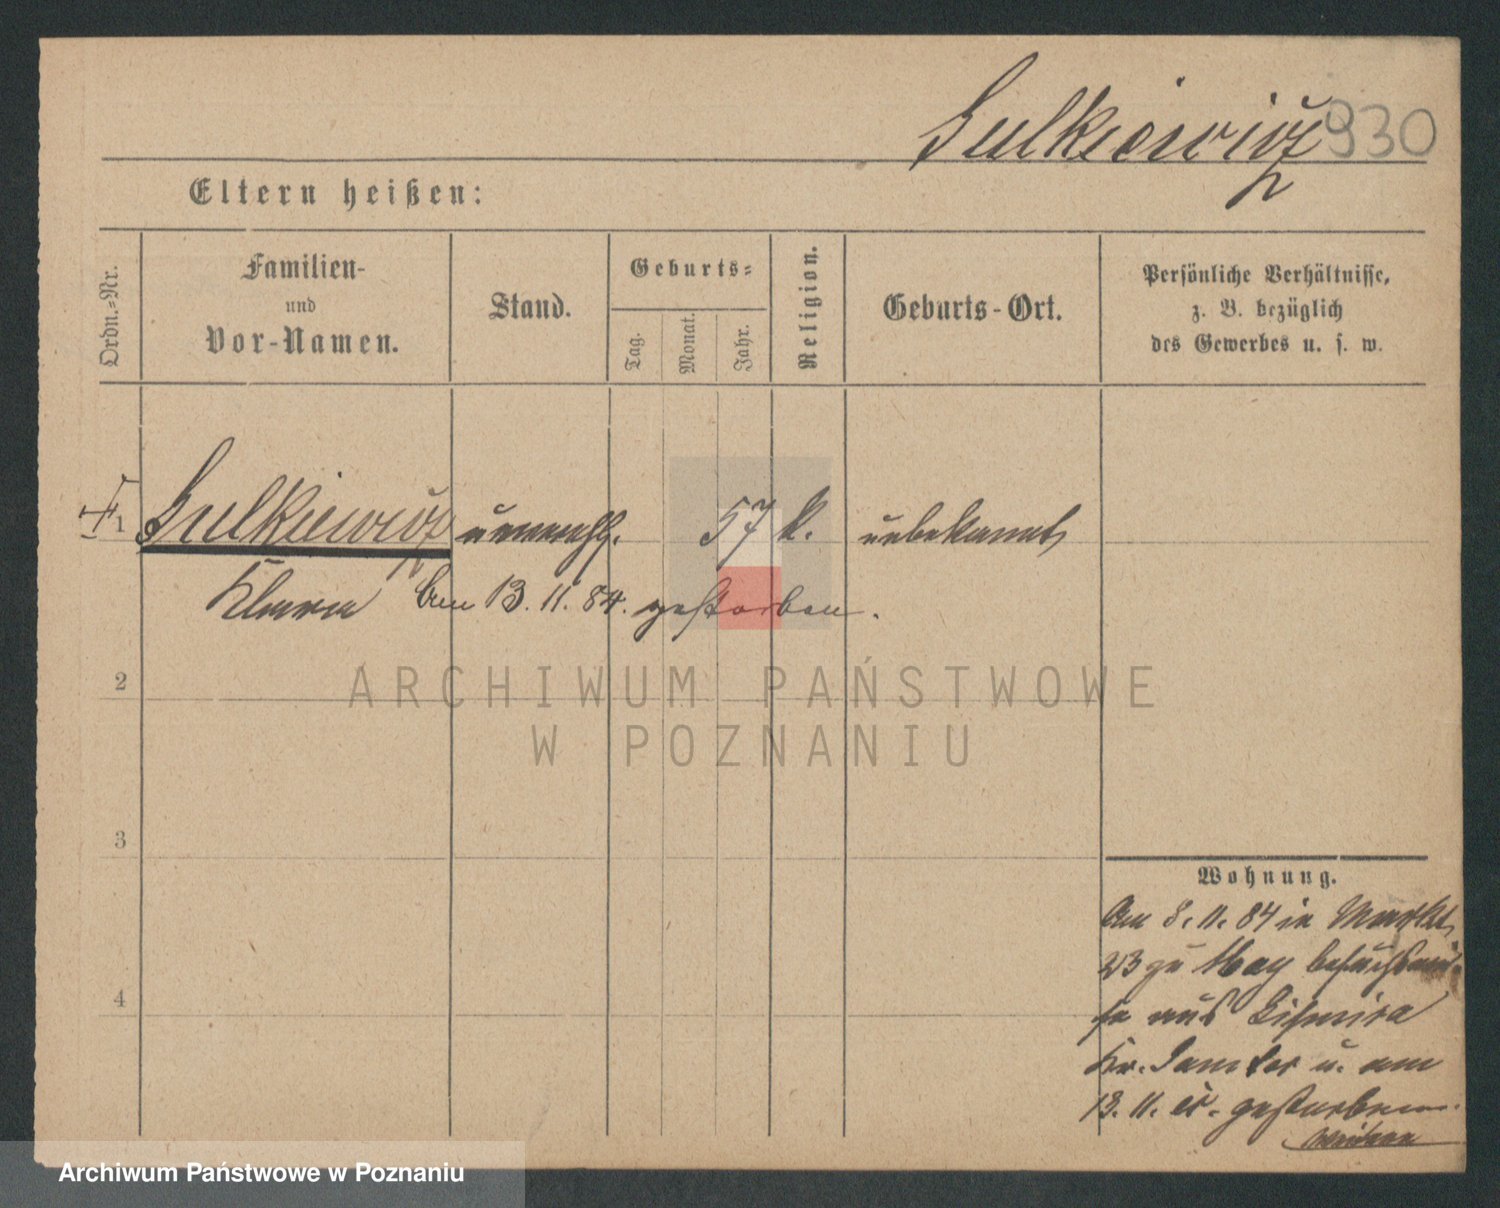 Sulkiewicz 930
Eltern heißen:
Ordn.-Nr.
Familien-
und
Vor-Namen.
Stand.
Geburts-
Tag.
Monat.
Jahr.
Religion.
Geburts-Ort.
Persönliche Verhältnisse,
z. B. bezüglich
des Gewerbes u. s. w.
1 Sulkiewicz unverehl. 57 k. unbekannt
Klara Am 13. 11. 84. gestorben.
2
ARCHIWUM PAŃSTWOWE
W POZNANIU
3
Wohnung.
Am 8. 11. 84 in Markt
23 zu besuchswei-
se aus
4
Kr. Samter u. am
13. 11. gestorben
Archiwum Państwowe w Poznaniu